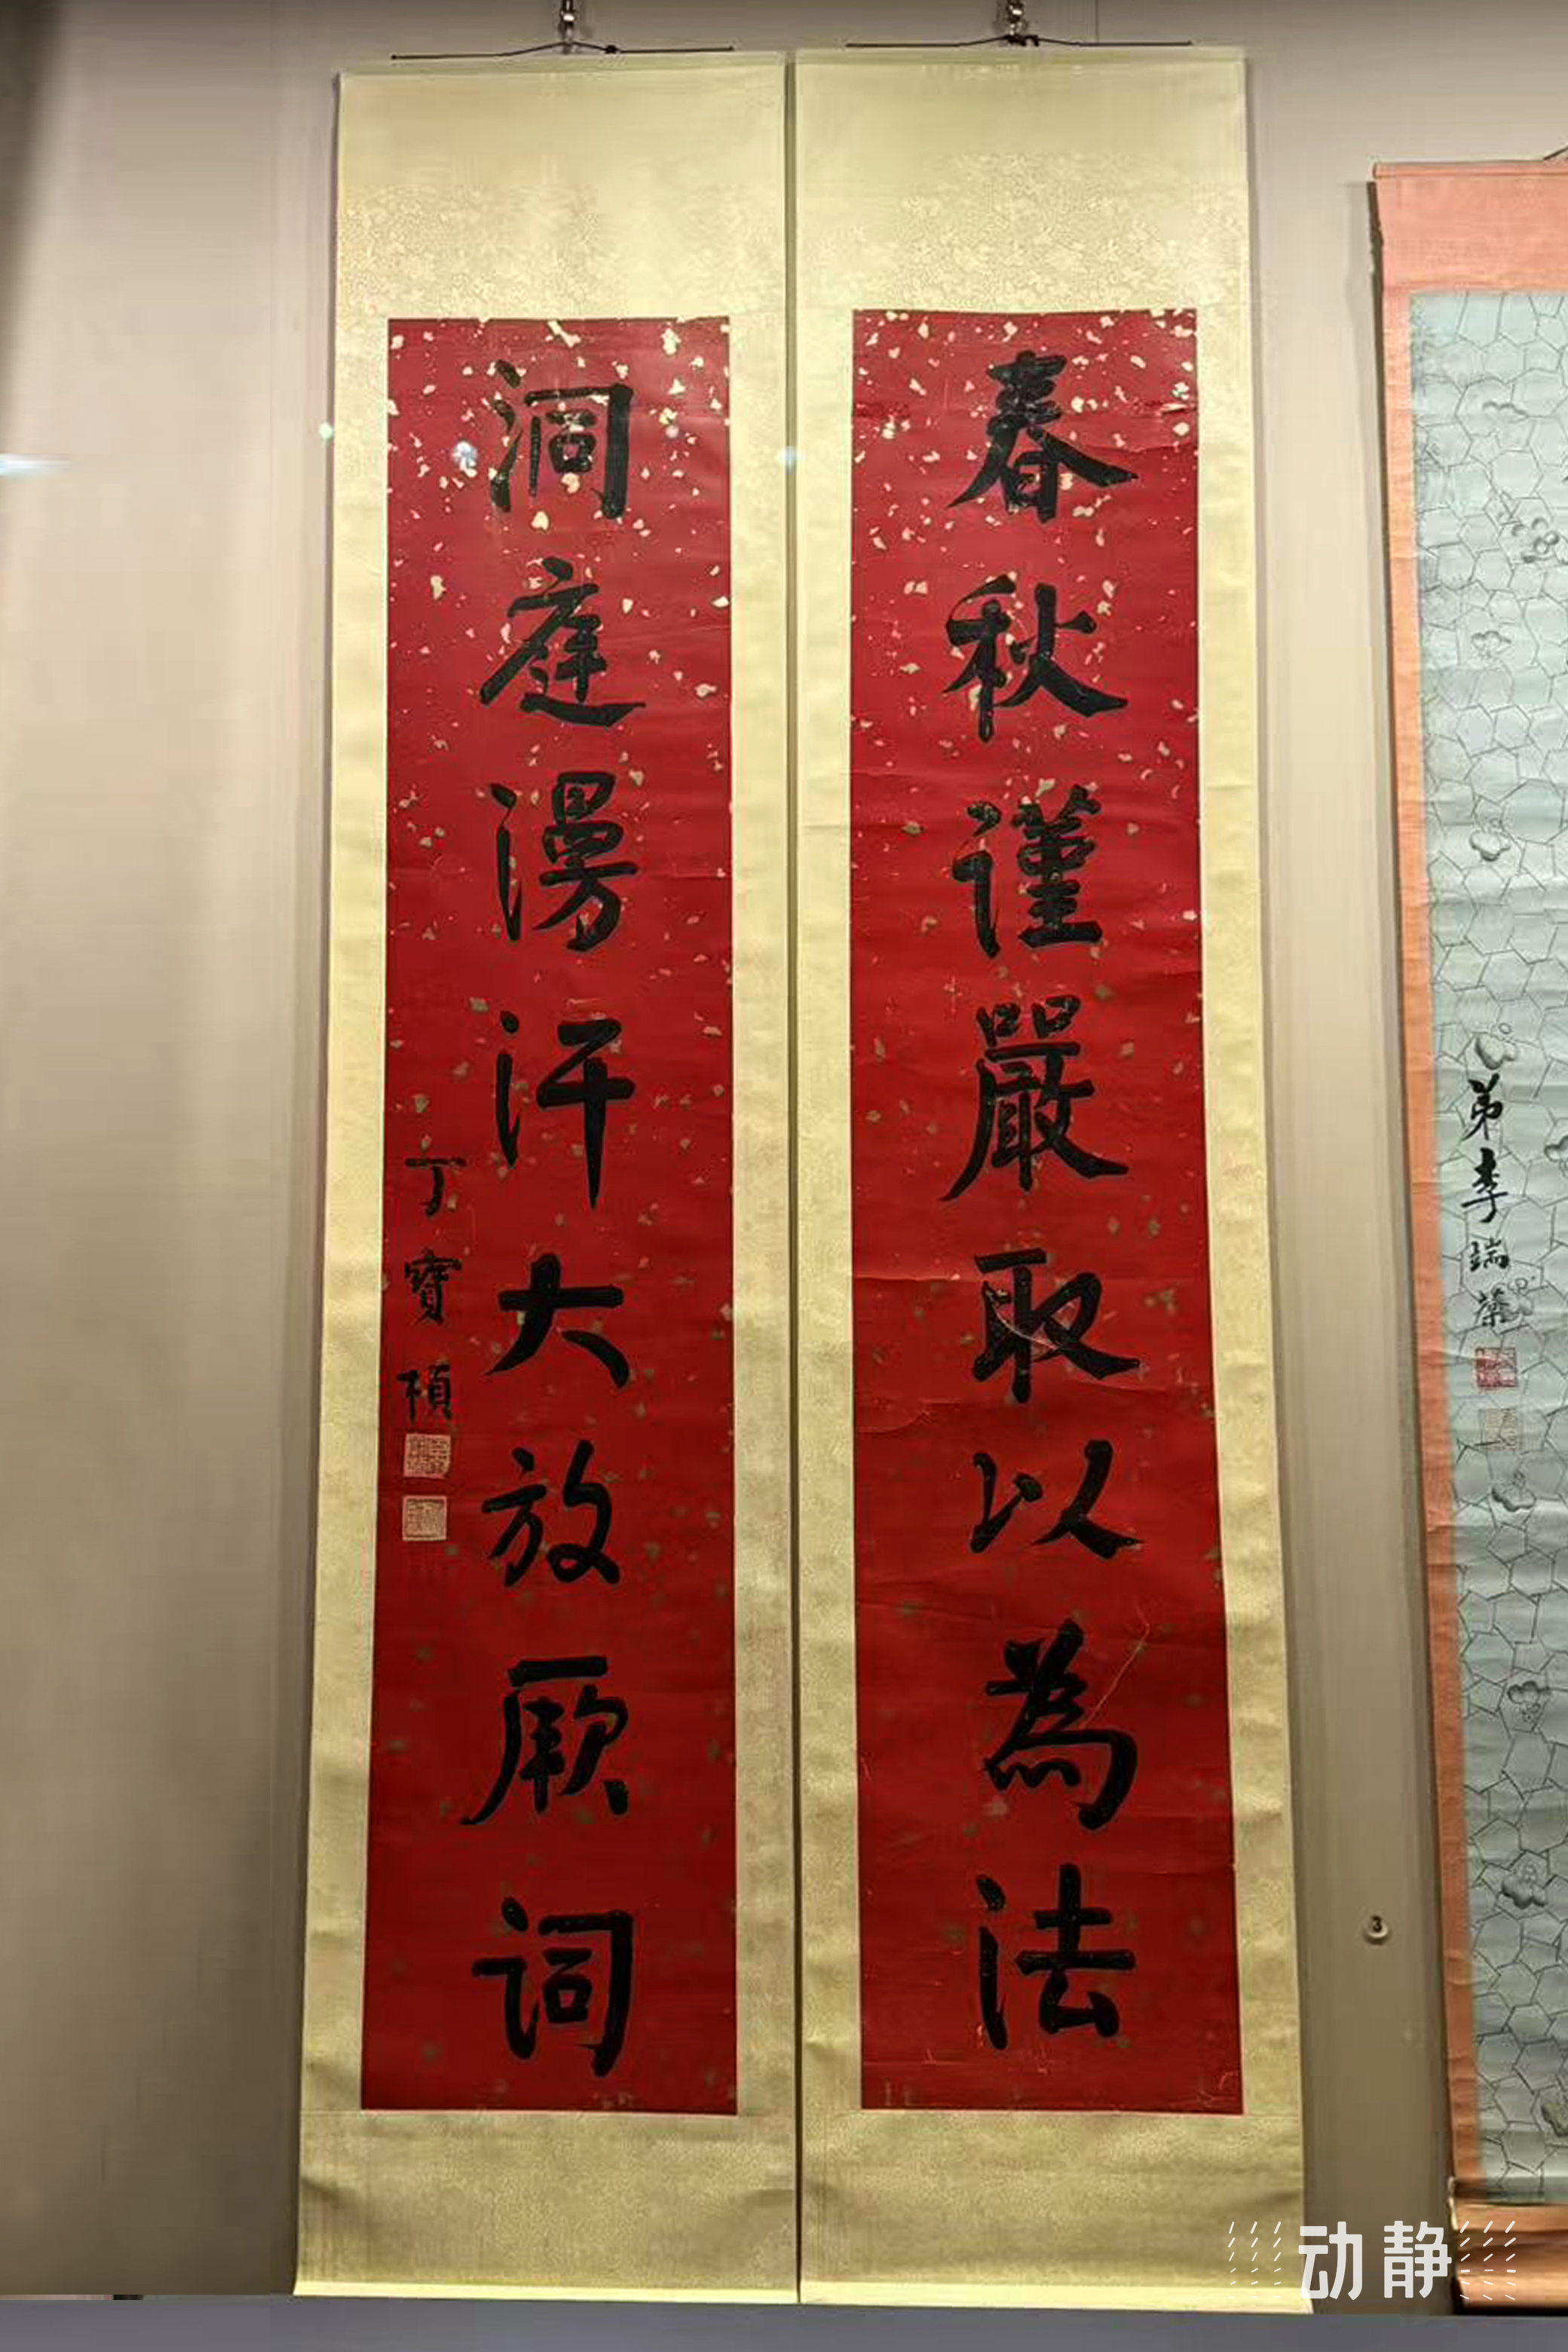 春秋謹嚴取以為法
洞庭漫汗大放厥詞
丁寶楨
弟李瑞棻
3
动静